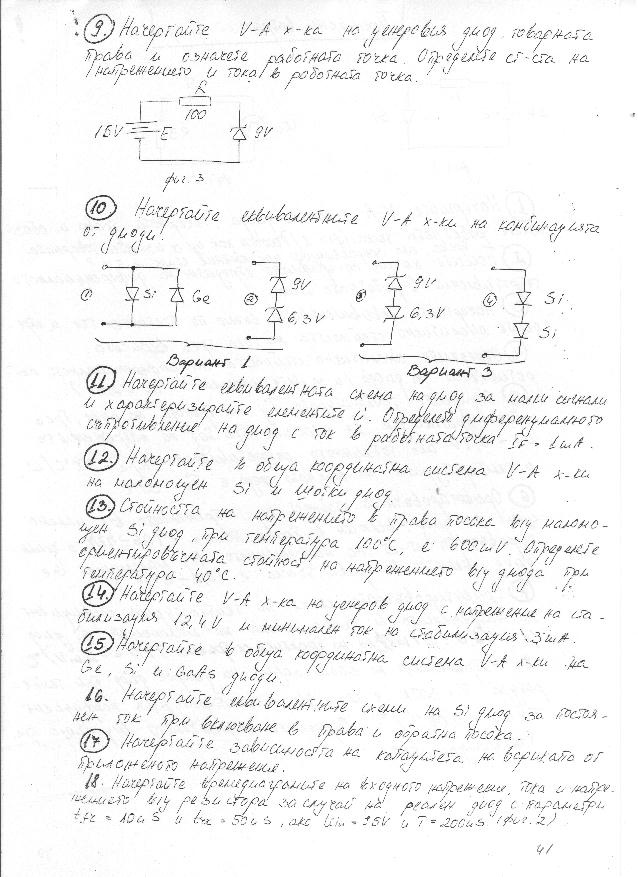 9. Начертайте V-A х-ка на ценеровия диод, товарната
права и означете работната точка. Определете ст-ста на
напрежението и тока в работната точка.
R
100
15V E 9V
фиг. 3
10 Начертайте еквивалентните V-A х-ки на комбинацията
от диоди
1 Si Ge 2 9V 6,3V 3 9V 6,3V 4 Si Si
Вариант 1 Вариант 3
11 Начертайте еквивалентната схема на диод за малки сигнали
и характеризирайте елементите ѝ. Определете диференциалното
съпротивление на диод с ток в работната точка IF = 1mA.
12. Начертайте в обща координатна система V-A х-ки
на маломощен Si и Шотки диод.
13. Стойността на напрежението в права посока в/у маломо-
щен Si диод, при температура 100°C, е 600mV. Определете
ориентировъчната стойност на напрежението в/у диода при
температура 40°C.
14. Начертайте V-A х-ка на ценеров диод с напрежение на ста-
билизация 12,4V и минимален ток на стабилизация 3mA.
15 Начертайте в обща координатна система V-A х-ки на
Ge, Si и GaAs диоди.
16. Начертайте еквивалентните схеми на Si диод за постоя-
нен ток при включване в права и обратна посока.
17 Начертайте зависимостта на капацитета на варикапа от
приложеното напрежение.
18. Начертайте времедиаграмите на входното напрежение, тока и напре-
жението в/у резистора за случай на реален диод с параметри
tfr = 10nS и trr = 50nS, ако Um = 15V и T = 200nS (фиг. 2)
41